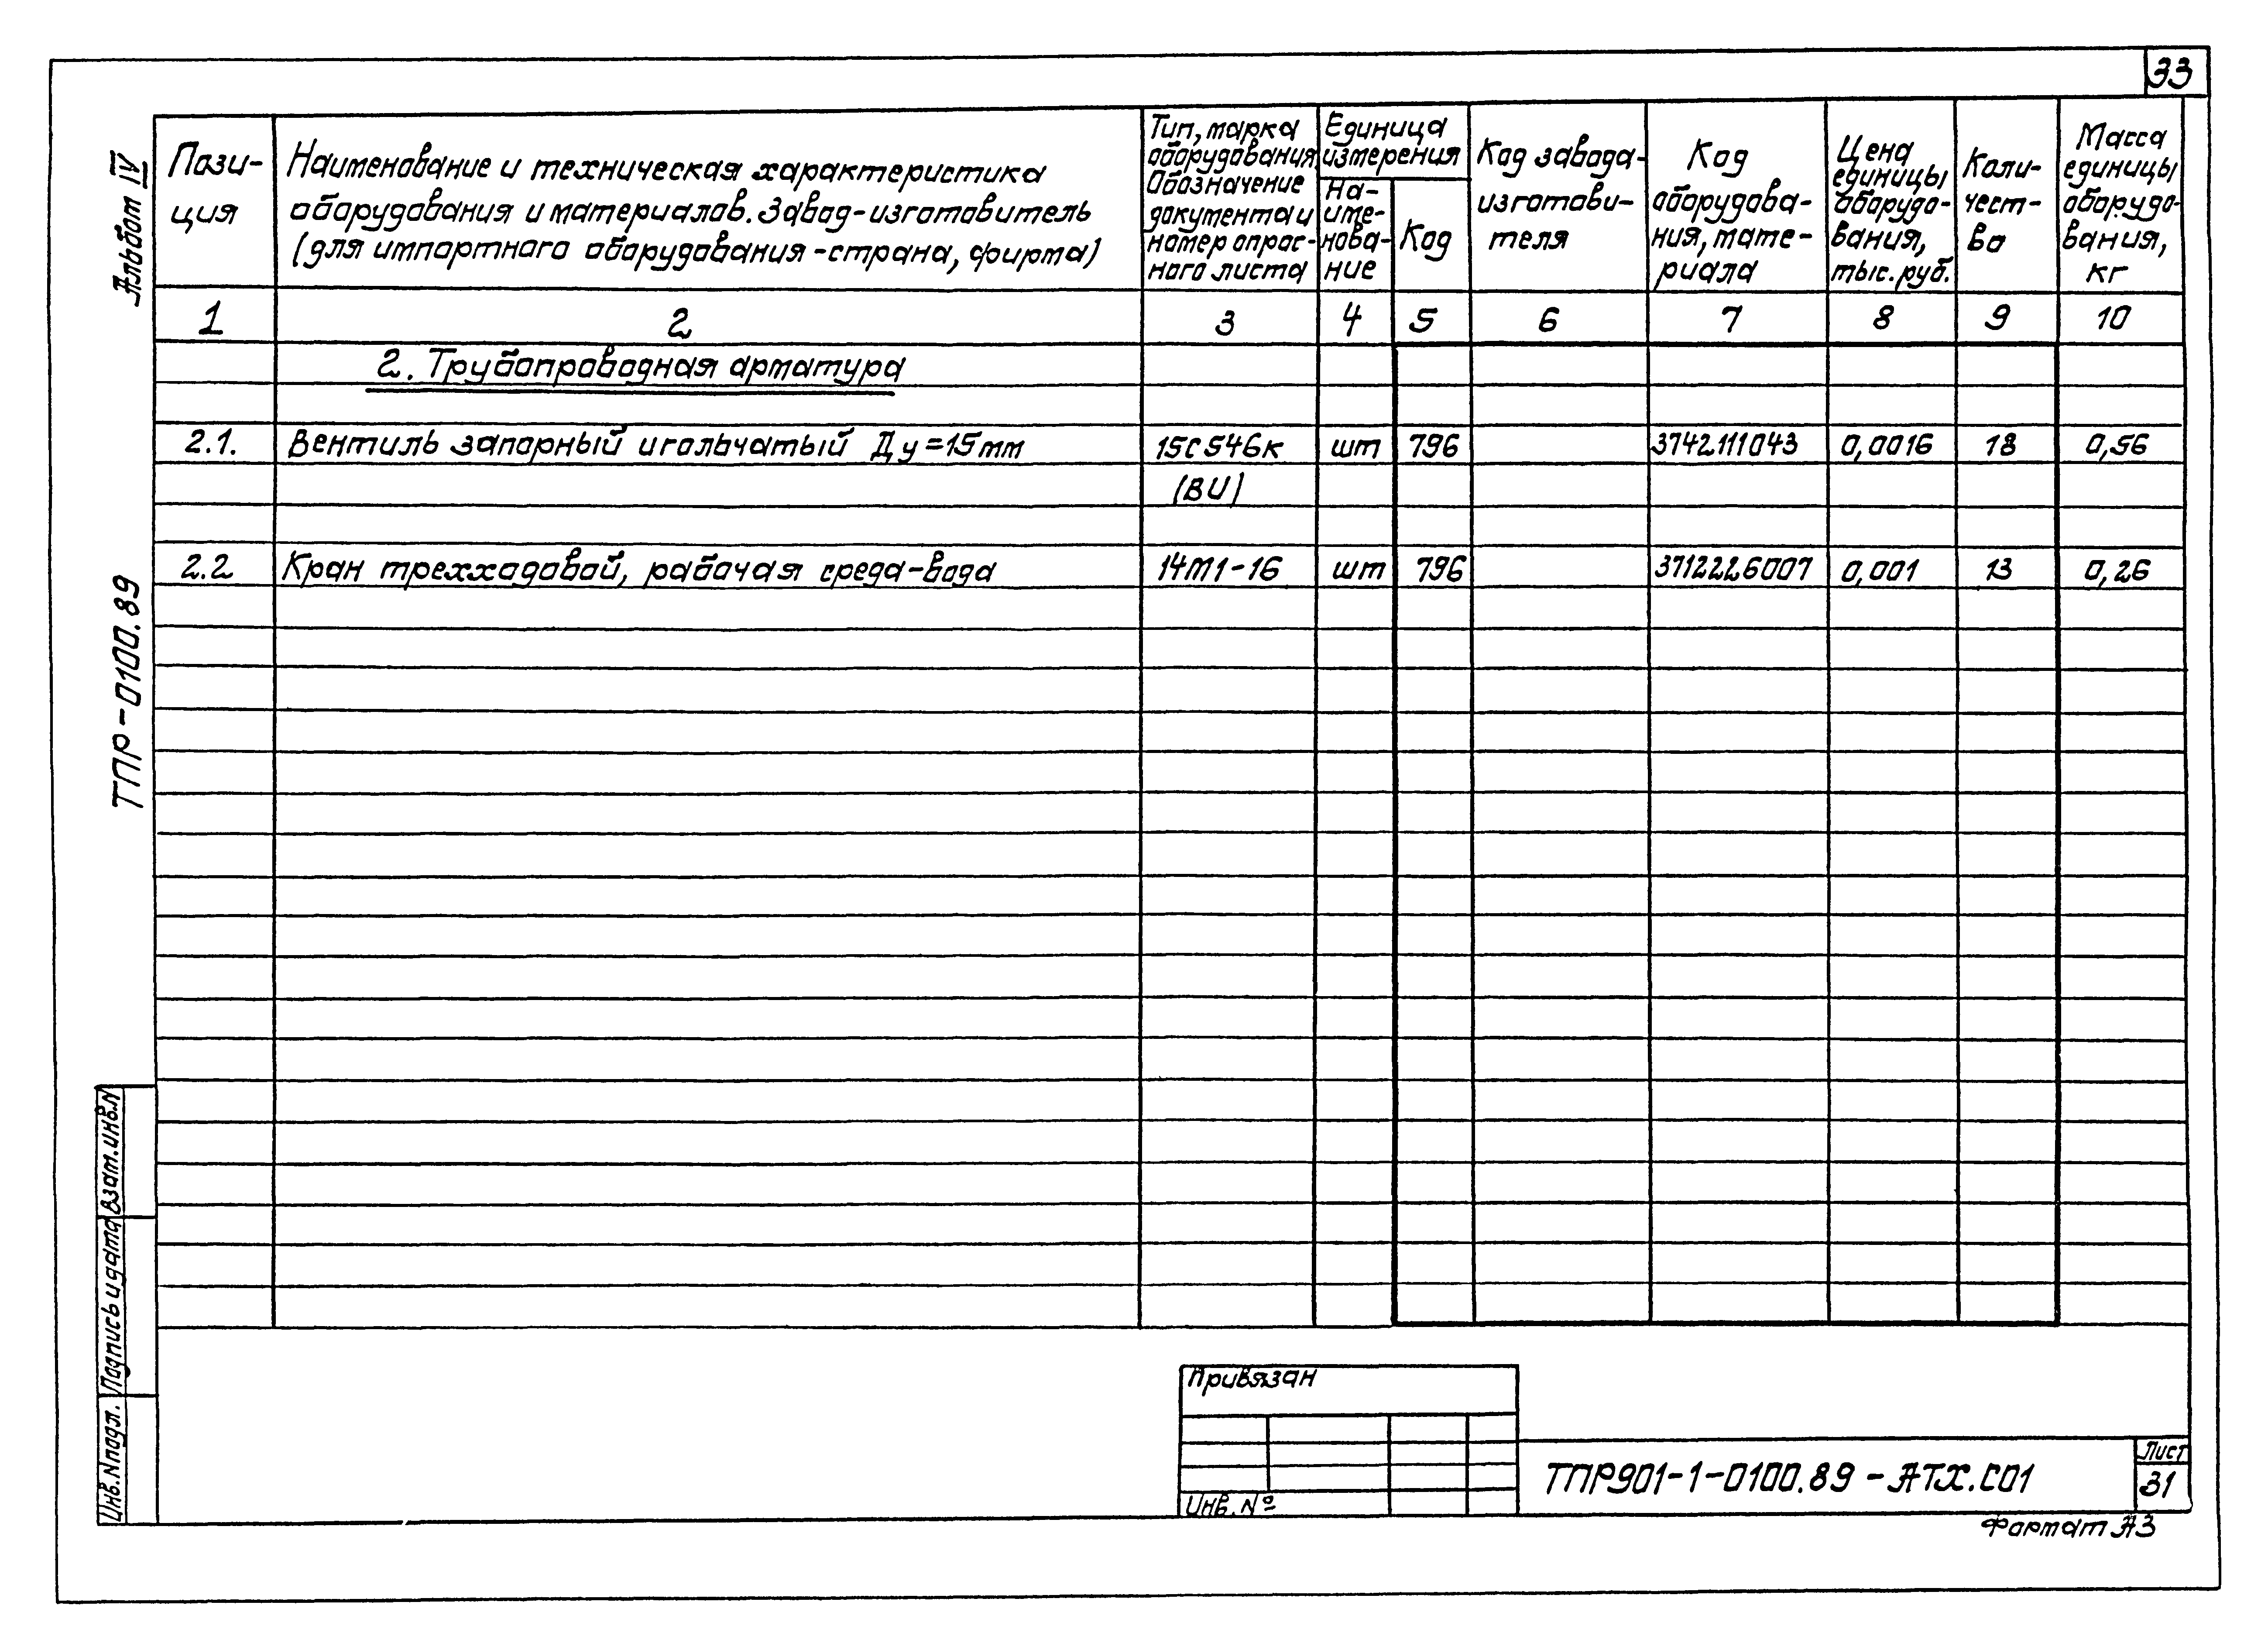 33
Альбом IV
ТПР-0100.89
Пози-
ция
Наименование и техническая характеристика
оборудования и материалов. Завод-изготовитель
(для импортного оборудования-страна, фирма)
Тип, марка
оборудования
Обозначение
документа и
номер опрос-
ного листа
Единица
измерения
На-
име-
нова-
ние
Код
Код завода-
изготови-
теля
Код
оборудова-
ния, мате-
риала
Цена
единицы
оборудо-
вания,
тыс. руб.
Коли-
чест-
во
Масса
единицы
оборудо-
вания,
кг
1 2 3 4 5 6 7 8 9 10
2. Трубопроводная арматура
2.1. Вентиль запорный игольчатый Ду=15мм 15с546к шт 796 3742111043 0,0016 18 0,56
(ВИ)
2.2 Кран трехходовой, рабочая среда-вода 14М1-16 шт 796 3712226007 0,001 13 0,26
Взам.инв.N
Подпись и дата
Инв.Nподл.
Привязан
Инв. №
ТПР901-1-0100.89-АТХ.С01
Лист
31
Формат А3